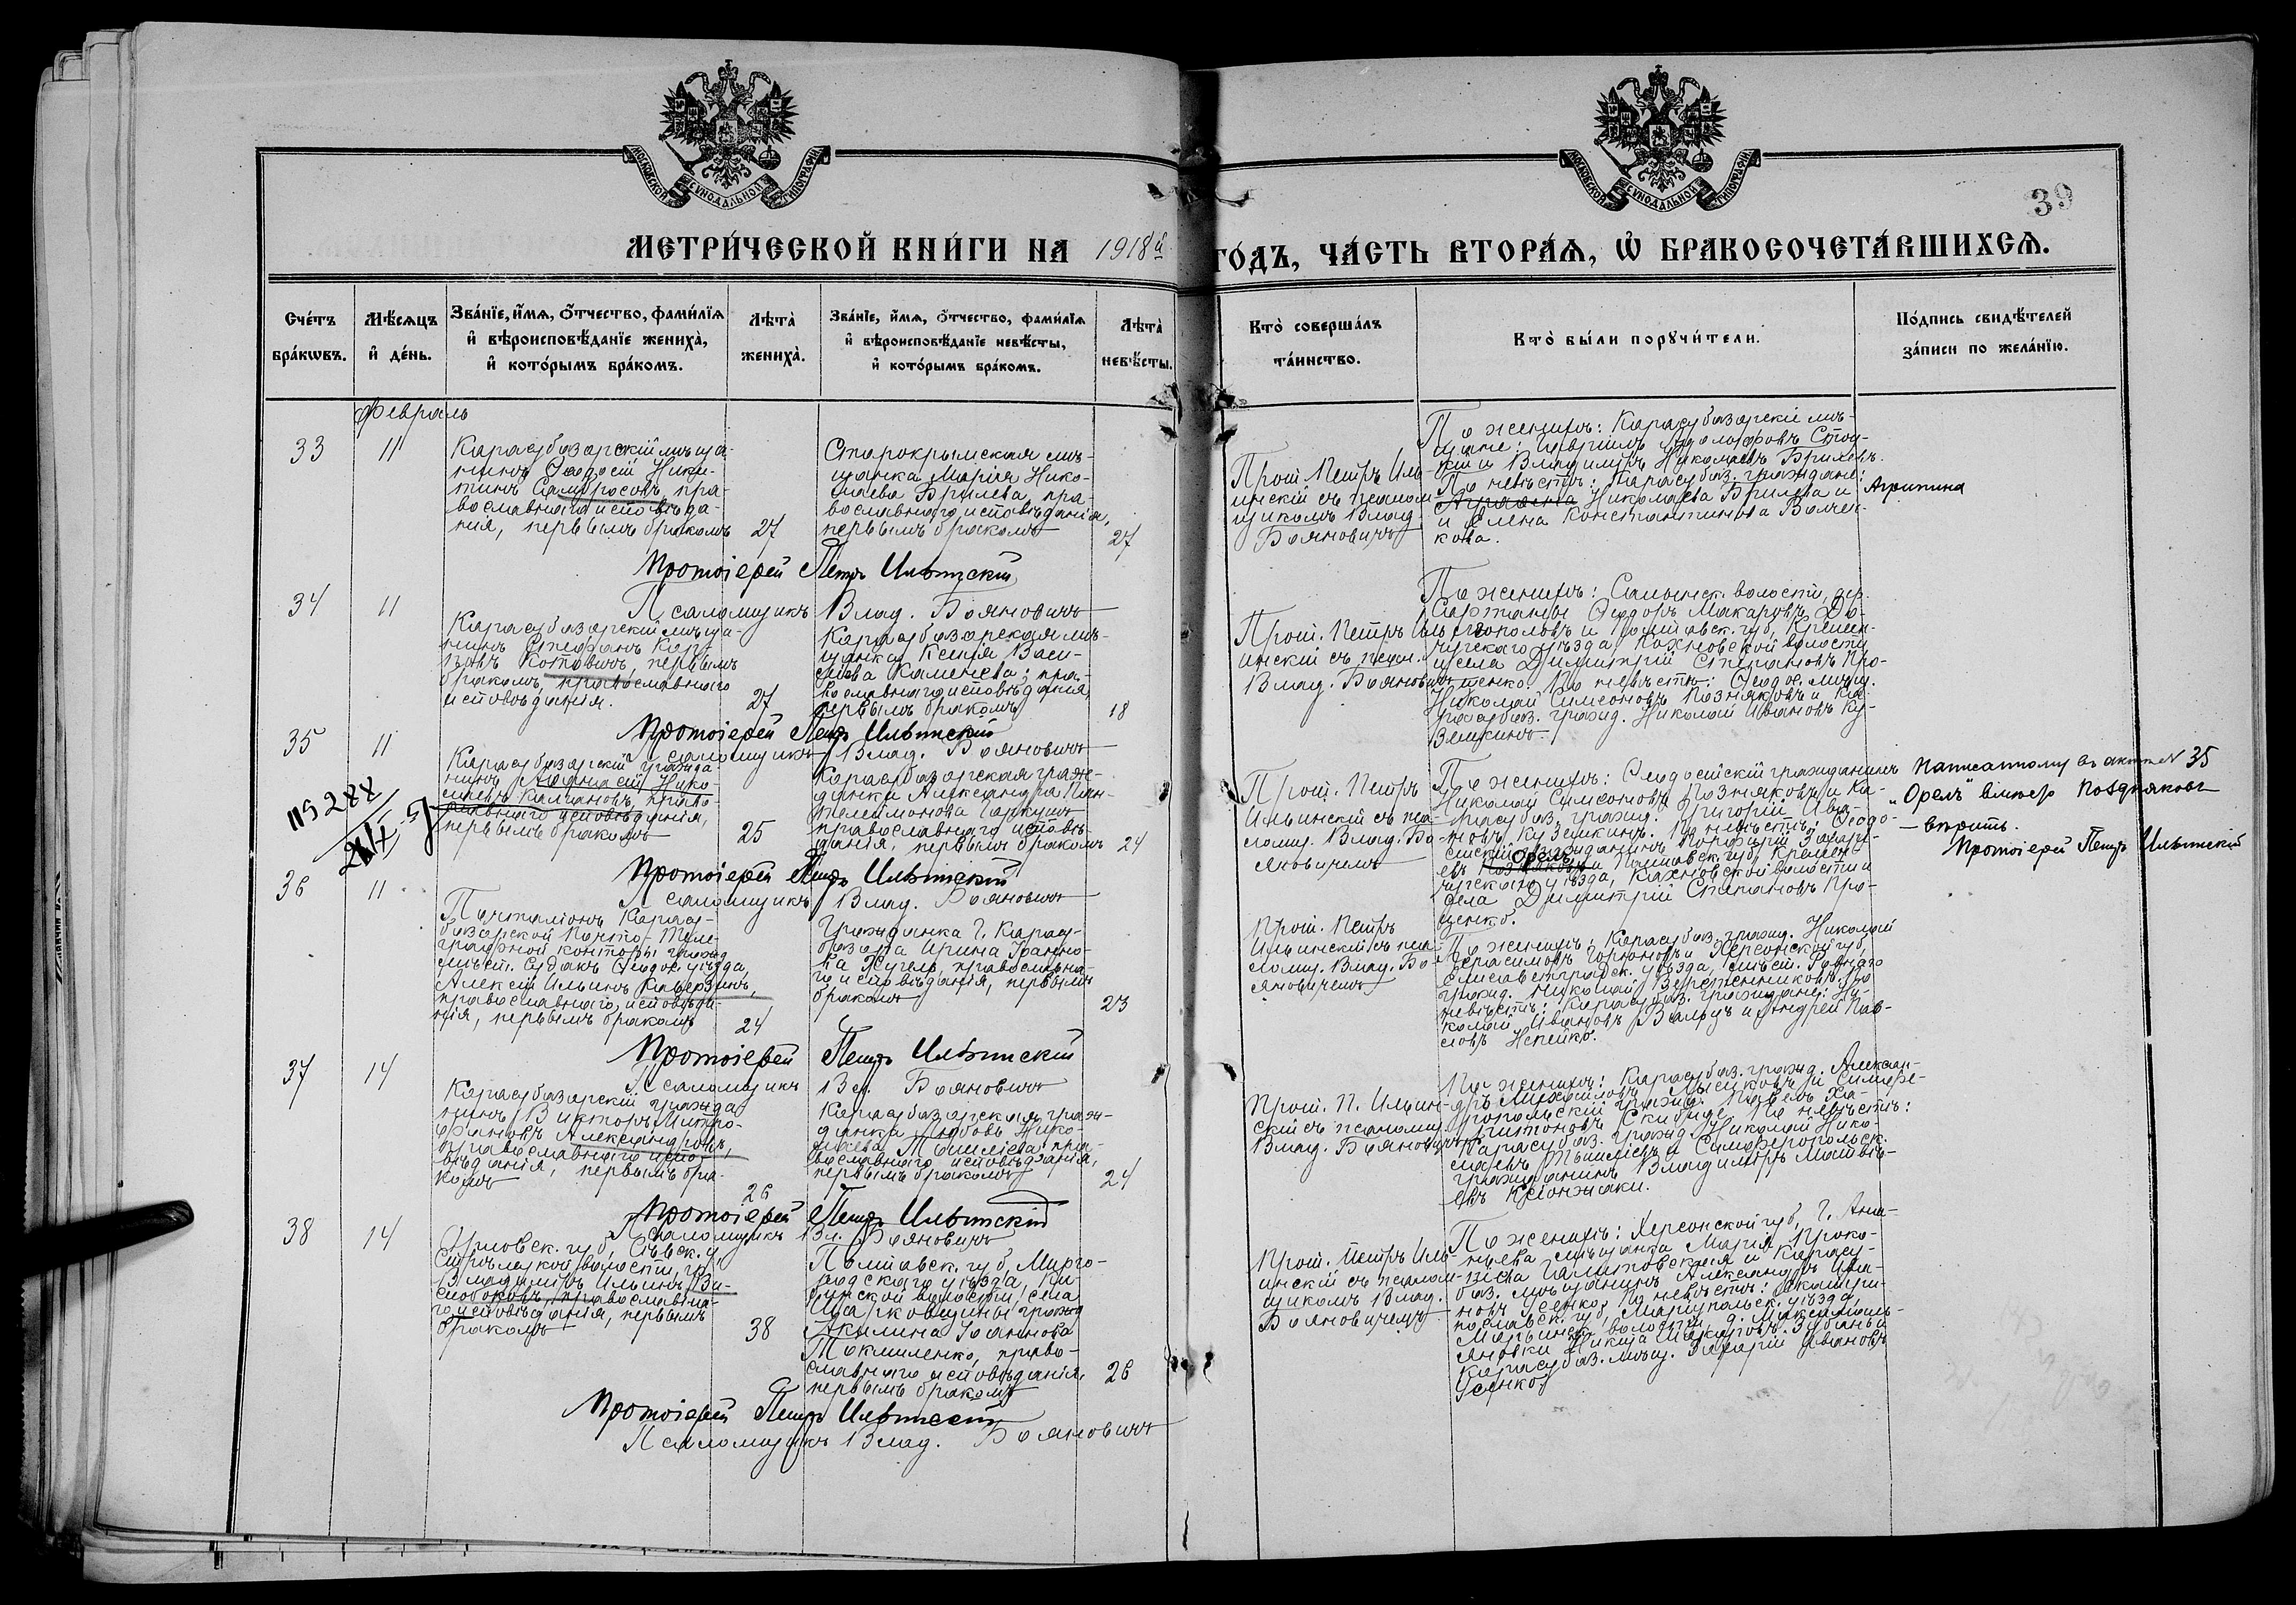 МОСКОВСКОЙ СѴНОДАЛЬНОЙ ТИПОГРАФІИ
МОСКОВСКОЙ СѴНОДАЛЬНОЙ ТИПОГРАФІИ
39
МЕТРИ́ЧЕСКОЙ КНИ́ГИ НА 1918й ГО́ДЪ, ЧА́СТЬ ВТОРА́Ѧ, Ѡ҆ БРАКОСОЧЕТА́ВШИХСѦ.
Сче́тъ бра́кѡвъ.
Мѣ́сѧцъ и҆ де́нь.
Зва́нїе, и҆́мѧ, ѻ҆́тчество, фами́лїѧ и҆ вѣроисповѣ́данїе жениха̀, и҆ кото́рымъ бра́комъ.
Лѣ́та̀ жениха̀.
Зва́нїе, и҆́мѧ, ѻ҆́тчество, фами́лїѧ и҆ вѣроисповѣ́данїе невѣ́сты, и҆ кото́рымъ бра́комъ.
Лѣ́та̀ невѣ́сты.
Кто̀ соверша́лъ та́инство.
Кто̀ бы́ли порꙋчи́тели.
По́дпись свидѣ́телей за́писи по жела́нїю.
Февраль
33
11
Карасубазарскій мѣща-
нинъ Ѳеодосій Ники-
тинъ Самбросовъ, пра-
вославнаго исповѣда-
нія, первымъ бракомъ
27
Старокрымская мѣ-
щанка Марія Нико-
лаева Брилева, пра-
вославнаго исповѣданія,
первымъ бракомъ
27
Прот. Петръ Иль-
инскій съ псалом-
щикомъ Влад.
Бояновичъ
По женихѣ: Карасубазарскіе мѣ-
щане: Гавріилъ Адольфовъ Стой-
кій и Владиміръ Николаевъ Брилевъ.
По невѣстѣ: Карасубаз. граждане:
Аграфена Николаева Брилева и
и Елена Константинова Волчен-
кова.
Агрипина
Протоіерей Петръ Ильинскій
Псаломщикъ Влад. Бояновичъ
34
11
Карасубазарскій мѣща-
нинъ Стефанъ Кар-
повъ Котовичъ, первымъ
бракомъ, православнаго
исповѣданія.
27
Карасубазарская мѣ-
щанка Ксенія Васи-
льева Каменева, пра-
вославнаго исповѣданія,
первымъ бракомъ
18
Прот. Петръ Иль-
инскій съ псал.
Влад. Бояновичъ
По женихѣ: Салынск. волости, дер.
Сартаны Ѳеодоръ Макаровъ До-
и Полтавск. губ, Кремен-
чугскаго уѣзда Кохновской волости
и села Димитрій Степановъ Про-
ценко. По невѣстѣ: Ѳеодос. мѣщ.
Николай Симеоновъ Позняковъ и Ка-
расубаз. гражд. Николай Ивановъ Ку-
земкинъ.
Протоіерей Петръ Ильинскій
Псаломщикъ Влад. Бояновичъ
35
11
119 288
Карасубазарскій гражда-
нинъ Аѳанасій Нико-
лаевъ Калчановъ, право-
славнаго исповѣданія,
первымъ бракомъ
25
Карасубазарская граж-
данка Александра Пан-
телеимонова Гаркуша
православнаго исповѣ-
данія, первымъ бракомъ
24
Прот. Петръ
Ильинскій съ пса-
ломщ. Влад. Бо-
яновичемъ
По женихѣ: Ѳеодосійскій гражданинъ
Николай Симеоновъ Позняковъ и Ка-
расубаз. гражд. Григорій Ива-
новъ Куземкинъ. По невѣстѣ: Ѳеодо-
сійскій гражданинъ Порфирій Захарі-
евъ Орелъ и Полтавск. губ, Кремен-
чугскаго уѣзда, Кохновской волости и
села Димитрій Степановъ Про-
ценко.
Написанному въ актѣ № 35
„Орелъ“ вмѣсто Поздняковъ
— вѣрить.
Протоіерей Петръ Ильинскій
Протоіерей Петръ Ильинскій
Псаломщикъ Влад. Бояновичъ
36
11
Почталіонъ Карасу-
базарской Почто-Теле-
графной конторы гражд
мѣст. Судакъ Ѳеодос. уѣзда,
Алексій Ильинъ Каверзинъ,
православнаго, исповѣда-
нія, первымъ бракомъ
24
Гражданка г. Карасу-
базара Ирина Іоанно-
ва Жугель, православна-
го исповѣданія, первымъ
бракомъ
23
Прот. Петръ
Ильинскій съ пса-
ломщ. Влад. Бо-
яновичемъ
По женихѣ: Карасубаз. гражд. Николай
Герасимовъ Горюновъ и Херсонской губ,
Елисаветградск. уѣзда, мѣст. Ровнаго
гражд. Николай Веретенниковъ. По
невѣстѣ: Карасубаз. граждане: Ни-
колай Ивановъ Валрузъ и Андрей Пав-
ловъ Непейко.
Протоіерей Петръ Ильинскій
Псаломщикъ Вл. Бояновичъ
37
14
Карасубазарскій гражда-
нинъ Викторъ Митро-
фановъ Александровъ,
православнаго испо-
вѣданія, первымъ бра-
комъ
26
Карасубазарская граж-
данка Любовь Нико-
лаева Томилева, пра-
вославнаго исповѣданія,
первымъ бракомъ
24
Прот. П. Ильин-
скій съ псаломщ.
Влад. Бояновичъ
По женихѣ: Карасубаз. гражд. Алексан-
дръ Михайловъ Мысиковъ и Симфе-
ропольскій гражд. Павелъ Ха-
ритоновъ Скибиде. По невѣстѣ:
Карасубаз. гражд. Николай Нико-
лаевъ и Симферопольск.
гражданинъ Владиміръ Матвѣ-
евъ
Протоіерей Петръ Ильинскій
Псаломщикъ Вл. Бояновичъ
38
14
Орловск. губ, Сѣвск. у
Стрѣлецкой волости, гр.
Владиміръ Ильинъ Ви-
слобоковъ, православна-
го исповѣданія, первымъ
бракомъ
38
Полтавск. губ, Мирго-
родскаго уѣзда, Ки-
бинской волости, села
Шарковщины гражд
Акилина Іоаннова
Токмиленко, право-
славнаго исповѣданія,
первымъ бракомъ
26
Прот. Петръ Иль-
инскій съ псалом-
щикомъ Влад.
Бояновичемъ
По женихѣ: Херсонской губ, г. Анан-
ньева мѣщанка Марія Проко-
піева Галитовская и Карасу-
баз. мѣщанинъ Александръ Ива-
новъ Усенко. По невѣстѣ: Екатери-
нославск. губ, Маріупольск. уѣзда,
Марьинск. волости, д. Максимиль-
яновки Никита Макаровъ Зубань и
Карасубаз. мѣщ. Захарій Ивановъ
Усенко
Протоіерей Петръ Ильинскій
Псаломщикъ Влад. Бояновичъ